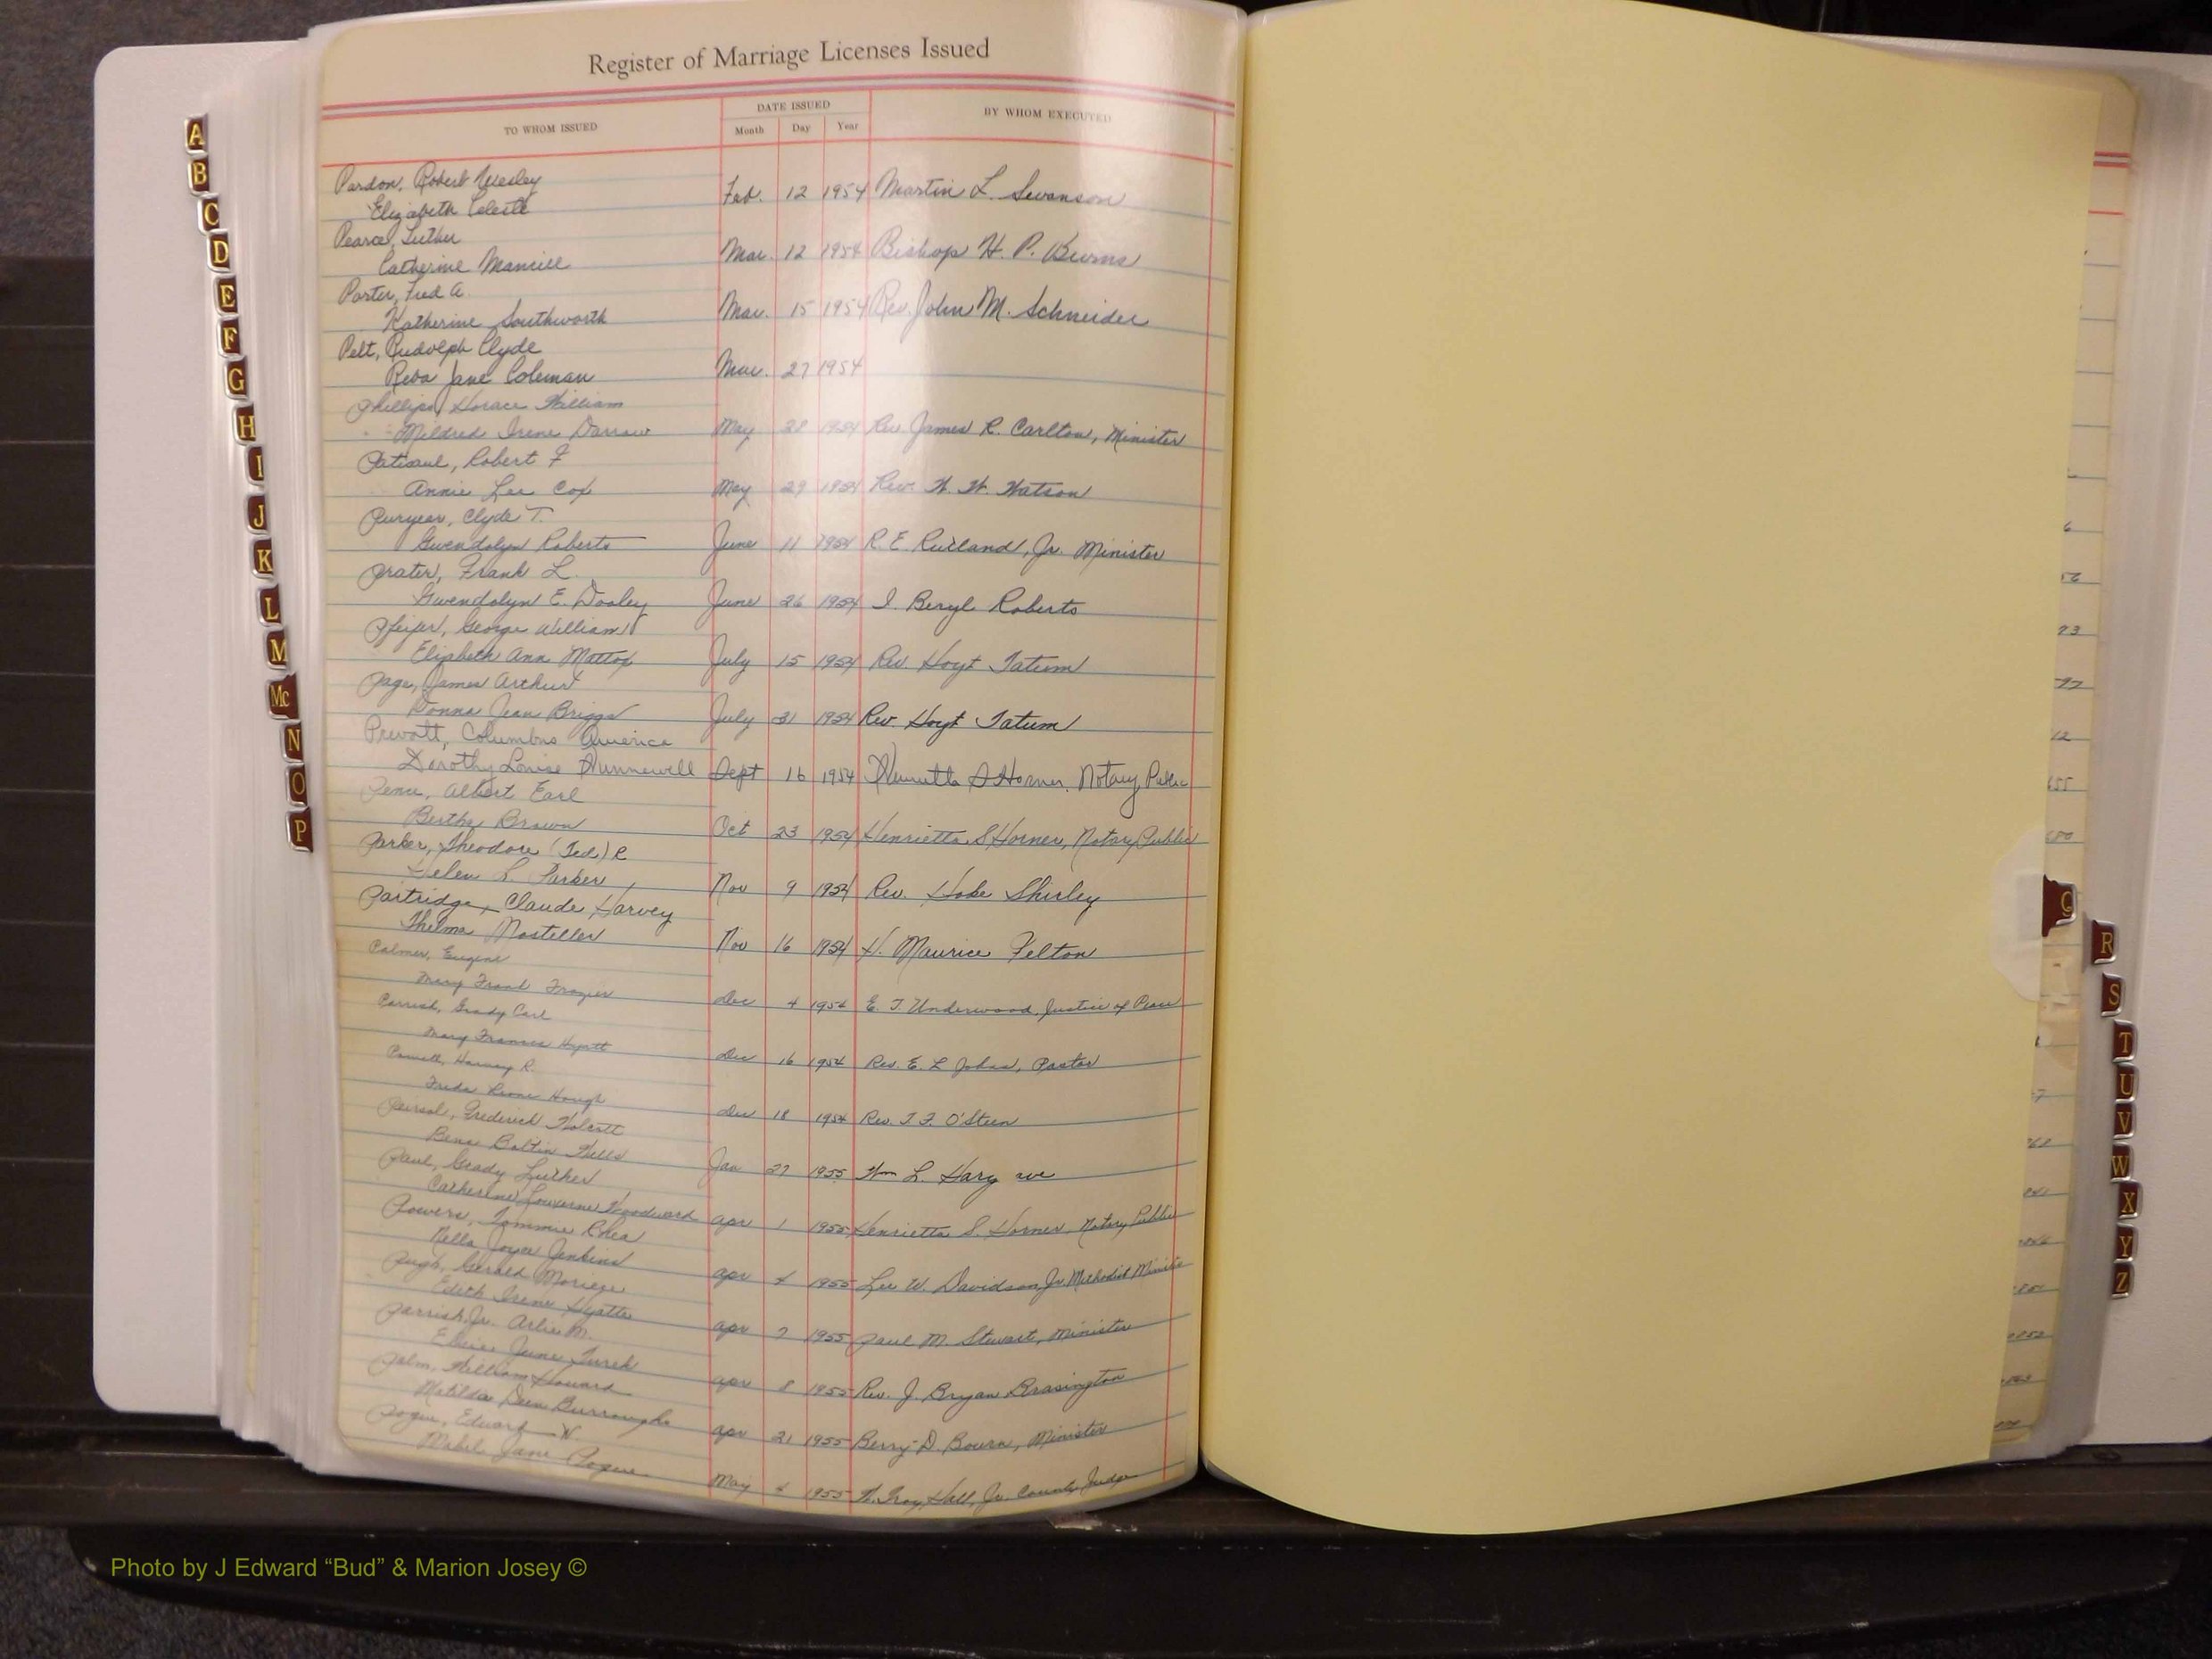 Register of Marriage Licenses Issued
TO WHOM ISSUED
DATE ISSUED
Month Day Year
BY WHOM EXECUTED
Pardon, Robert Wesley
Elizabeth Celeste
Feb. 12 1954 Martin L. Swanson
Pearce, Luther
Catherine Mancill
Mar. 12 1954 Bishop H. P. Burns
Porter, Fred A.
Katherine Southworth
Mar. 15 1954 Rev. John M. Schneider
Pelt, Rudolph Clyde
Reba Jane Coleman
Mar. 27 1954
Phillips, Horace William
Mildred Irene Darrow
May 28 1954 Rev. James R. Carlton, Minister
Patisaul, Robert F
Annie Lee Cox
May 29 1954 Rev. W. W. Watson
Puryear, Clyde T.
Gwendolyn Roberts
June 11 1954 R. E. Rutland, Jr. Minister
Prater, Frank L.
Gwendolyn E. Dooley
June 26 1954 I. Beryl Roberts
Pfeifer, George William
Elizabeth Ann Mattox
July 15 1954 Rev Hoyt Tatum
Page, James Arthur
Donna Jean Briggs
July 31 1954 Rev Hoyt Tatum
Prevatt, Columbus America
Dorothy Louise Hunnewell
Sept 16 1954 Henrietta S Horner, Notary Public
Pence, Albert Earl
Bertha Brown
Oct 23 1954 Henrietta S Horner, Notary Public
Parker, Theodore (Ted) R
Helen L. Parker
Nov 9 1954 Rev. Hoke Shirley
Partridge, Claude Harvey
Thelma Mosteller
Nov 16 1954 H. Maurice Felton
Palmer, Eugene
Mary Frank Frazier
Dec 4 1954 E. T. Underwood, Justice of Peace
Parrish, Grady Carl
Mary Frances Hyatt
Dec 16 1954 Rev. E. L Johns, Pastor
Harvey R.
Freda Hough
Dec 18 1954 Rev. T. F. O'Steen
Peirsol, Frederick Wolcott
Bena Boltin Wells
Jan 27 1955 Wm L. Harg ave
Paul, Grady Luther
Catherine Louverne Woodward
Apr 1 1955 Henrietta S. Horner, Notary Public
Powers, Tommie Rhea
Nella Joyce Jenkins
Apr 4 1955 Lee W. Davidson, Jr Methodist Minister
Pugh, Gerald
Edith Irene Hyatte
Apr 7 1955 Paul M. Stewart, Minister
Parrish, Jr. Arlie M.
June Turek
Apr 8 1955 Rev. J. Bryan Brasington
Palm, William Howard
Matilda Dean Burroughs
Apr 21 1955 Berry D. Bourn, Minister
Pogue, Edward W.
Mabel Jane Pogue
May 4 1955 W. Troy Hall, Jr. County Judge
A
B
C
D
E
F
G
H
I
J
K
L
M
Mc
N
O
P
Q
R
S
T
U
V
W
X
Y
Z
Photo by J Edward “Bud” & Marion Josey ©